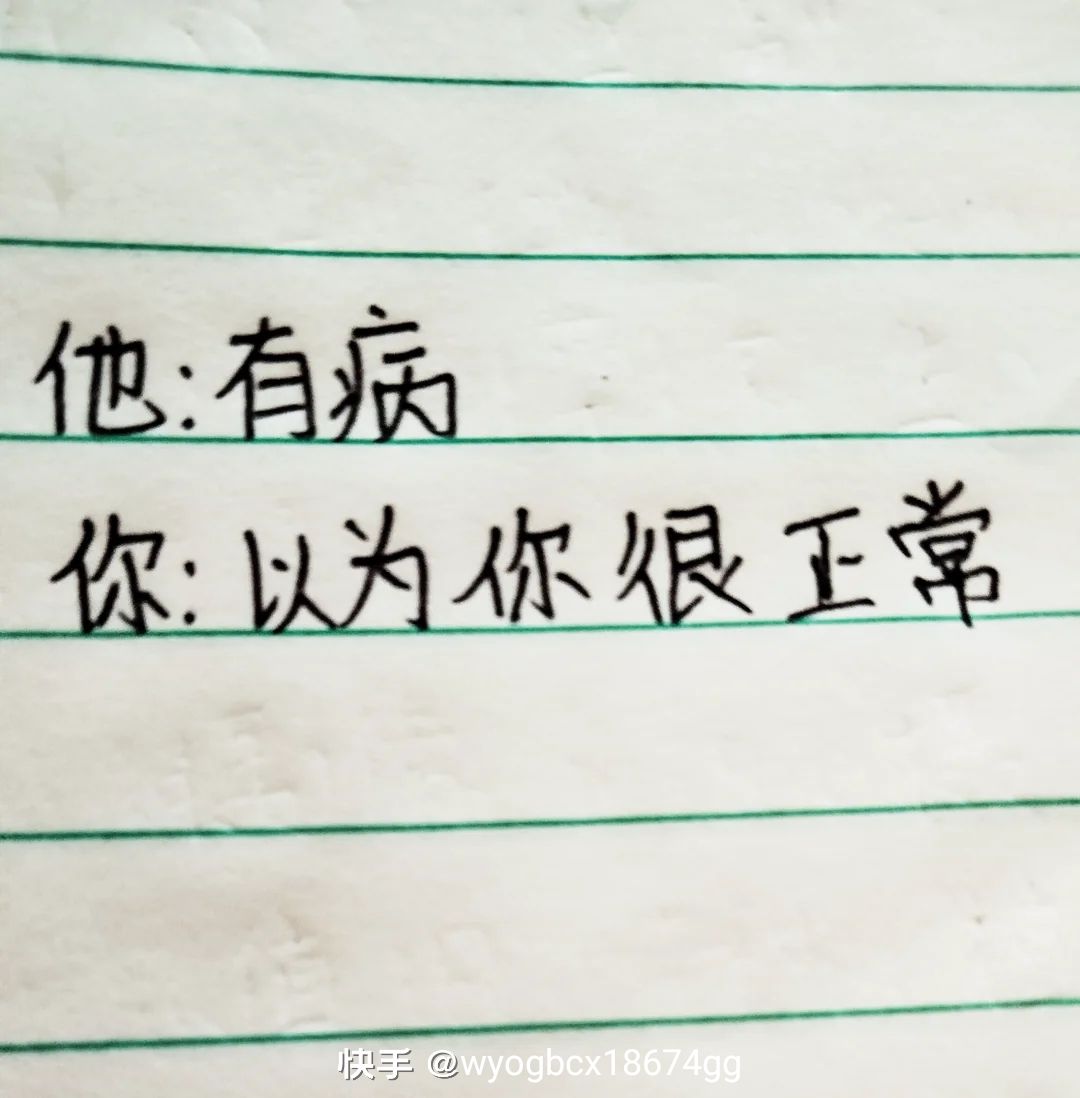 他:有病
你:以为你很正常
快手 @wyogbcx18674gg